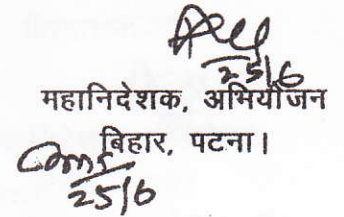 25/6
महानिदेशक, अभियोजन
बिहार, पटना।
25/6